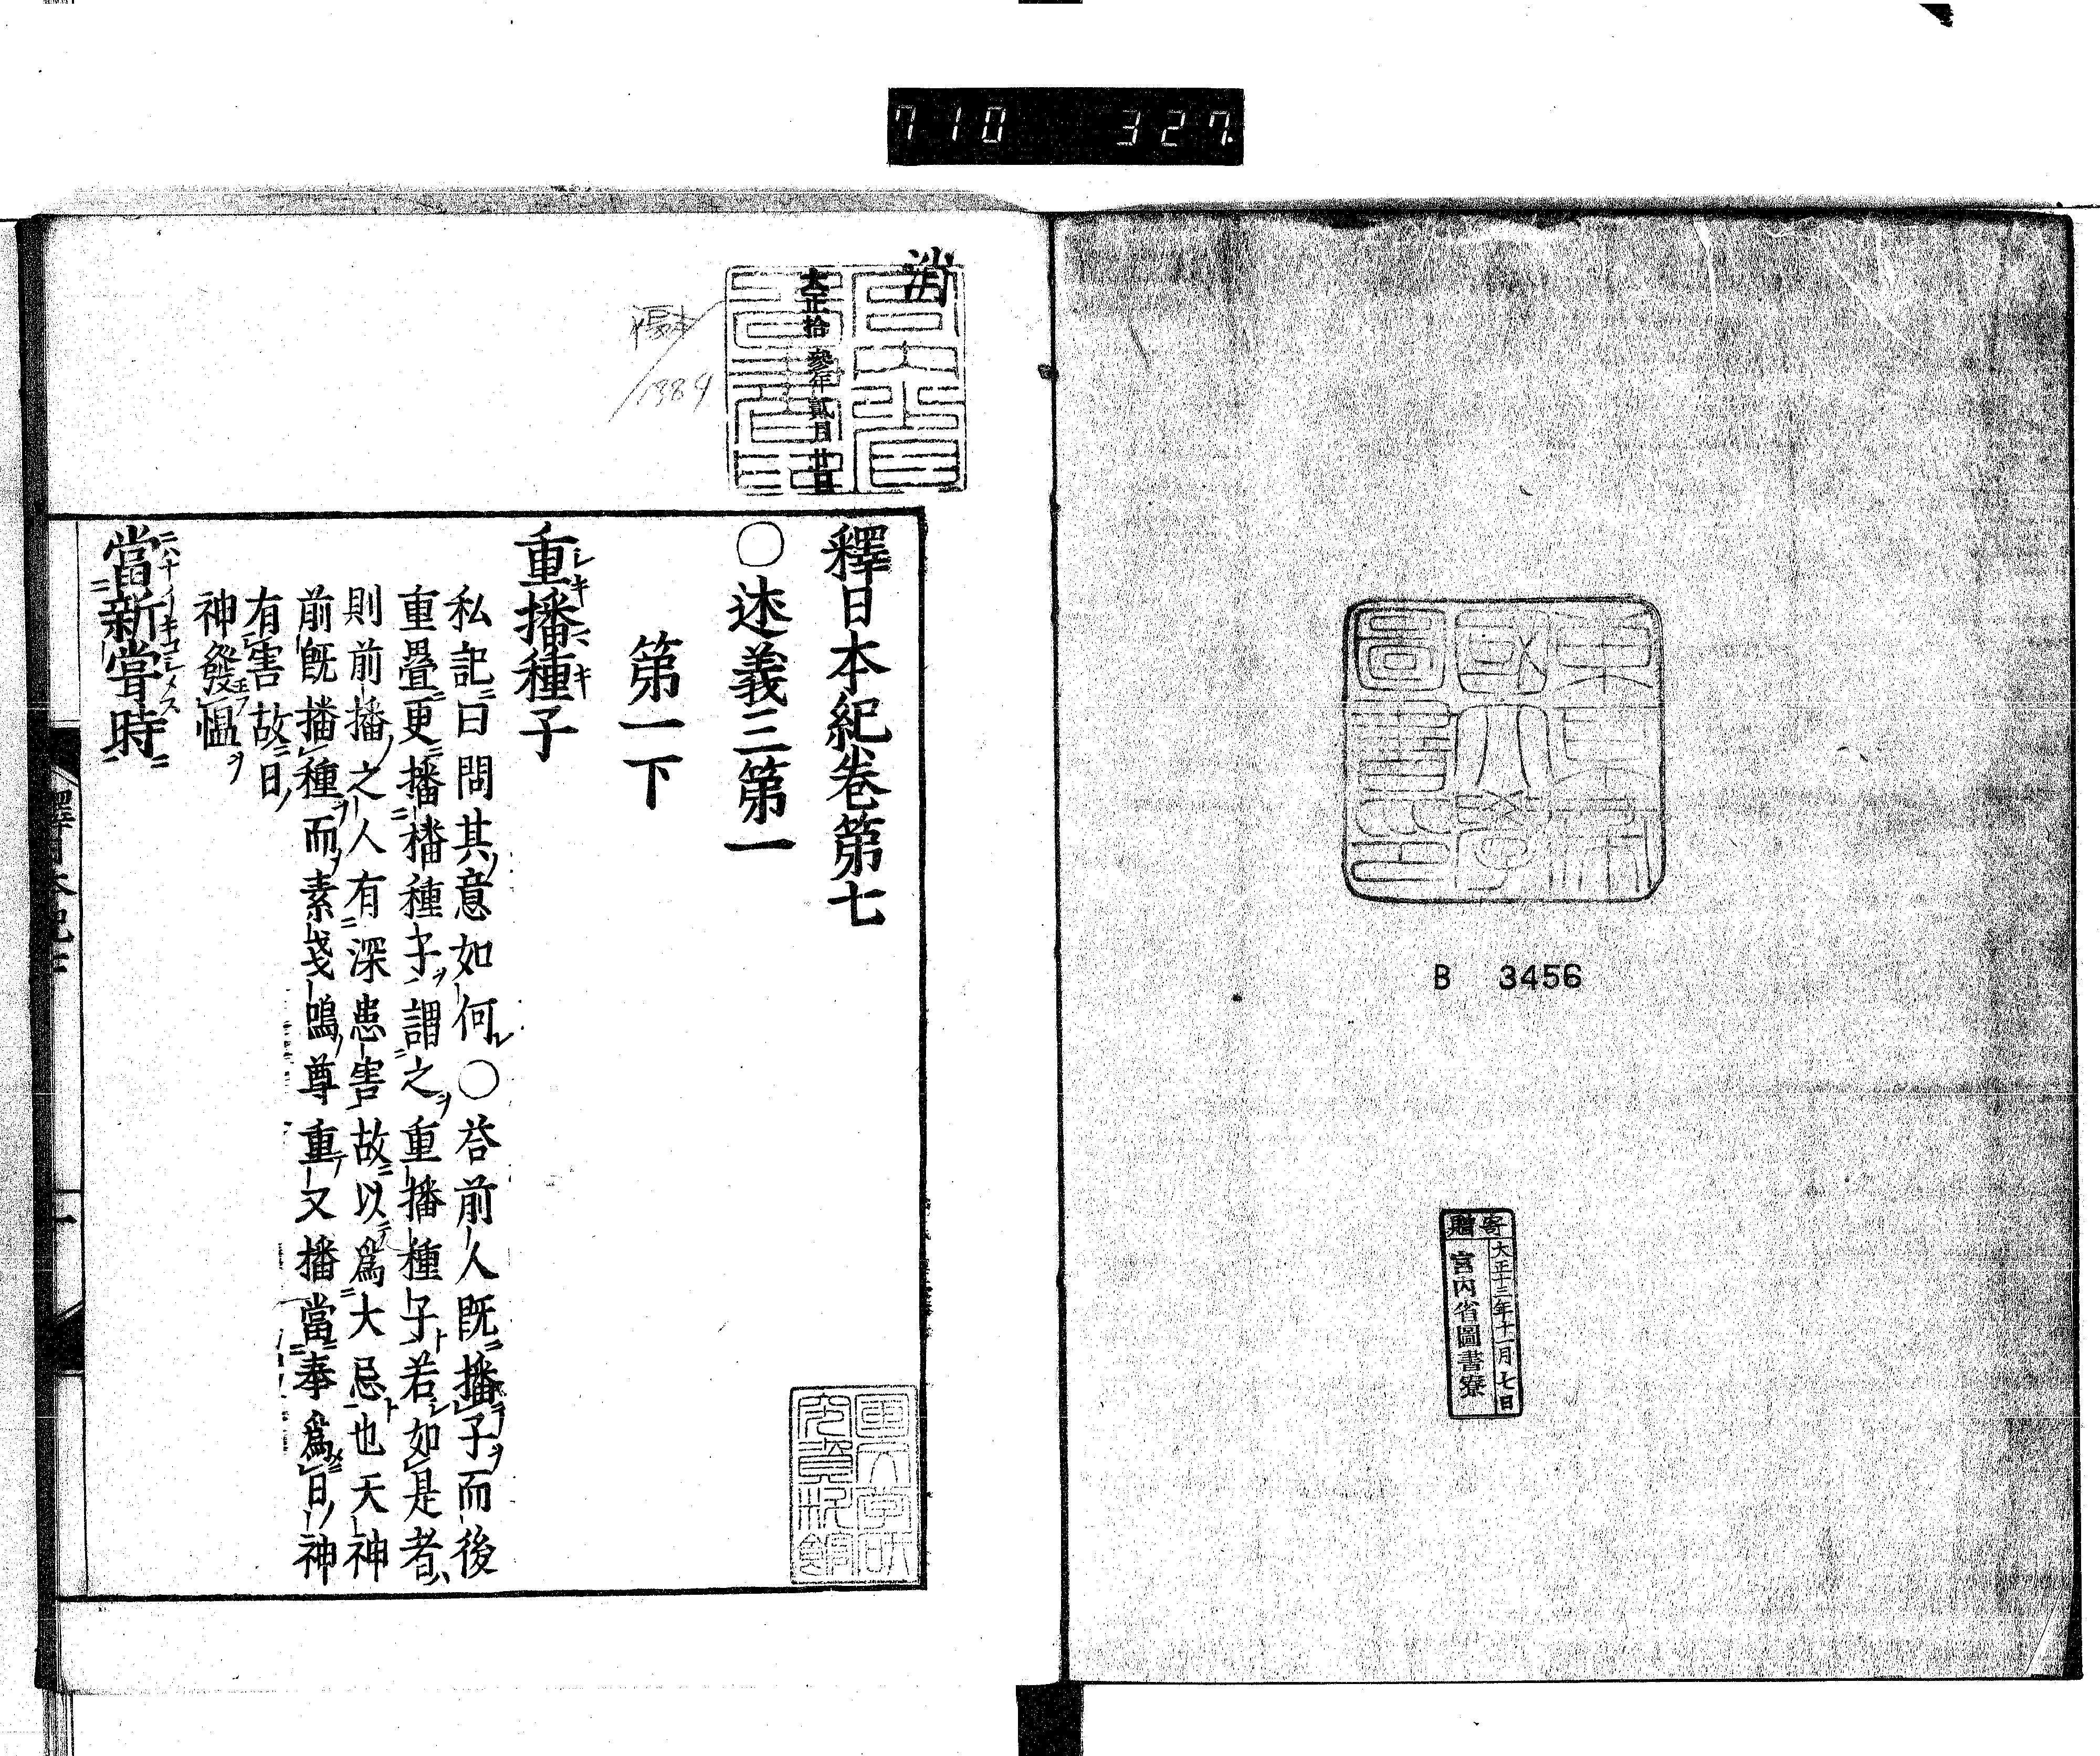 710 327
東京帝國大學圖書印
B 3456
寄贈
大正十三年十一月七日
宮内省圖書寮
消
大正拾參年貳月廿日
1884
釋日本紀卷第七
○述義三第一
第一下
重播種子
私記曰問其意如何○荅前人既播子而後
重疊更播種子謂之重播種子若如是者
則前播之人有深患害故以爲大忌也天神
前既播種而素戔嗚尊重又播當奉爲日神
有害故日
神發慍
當新嘗時
釋日本紀七
一